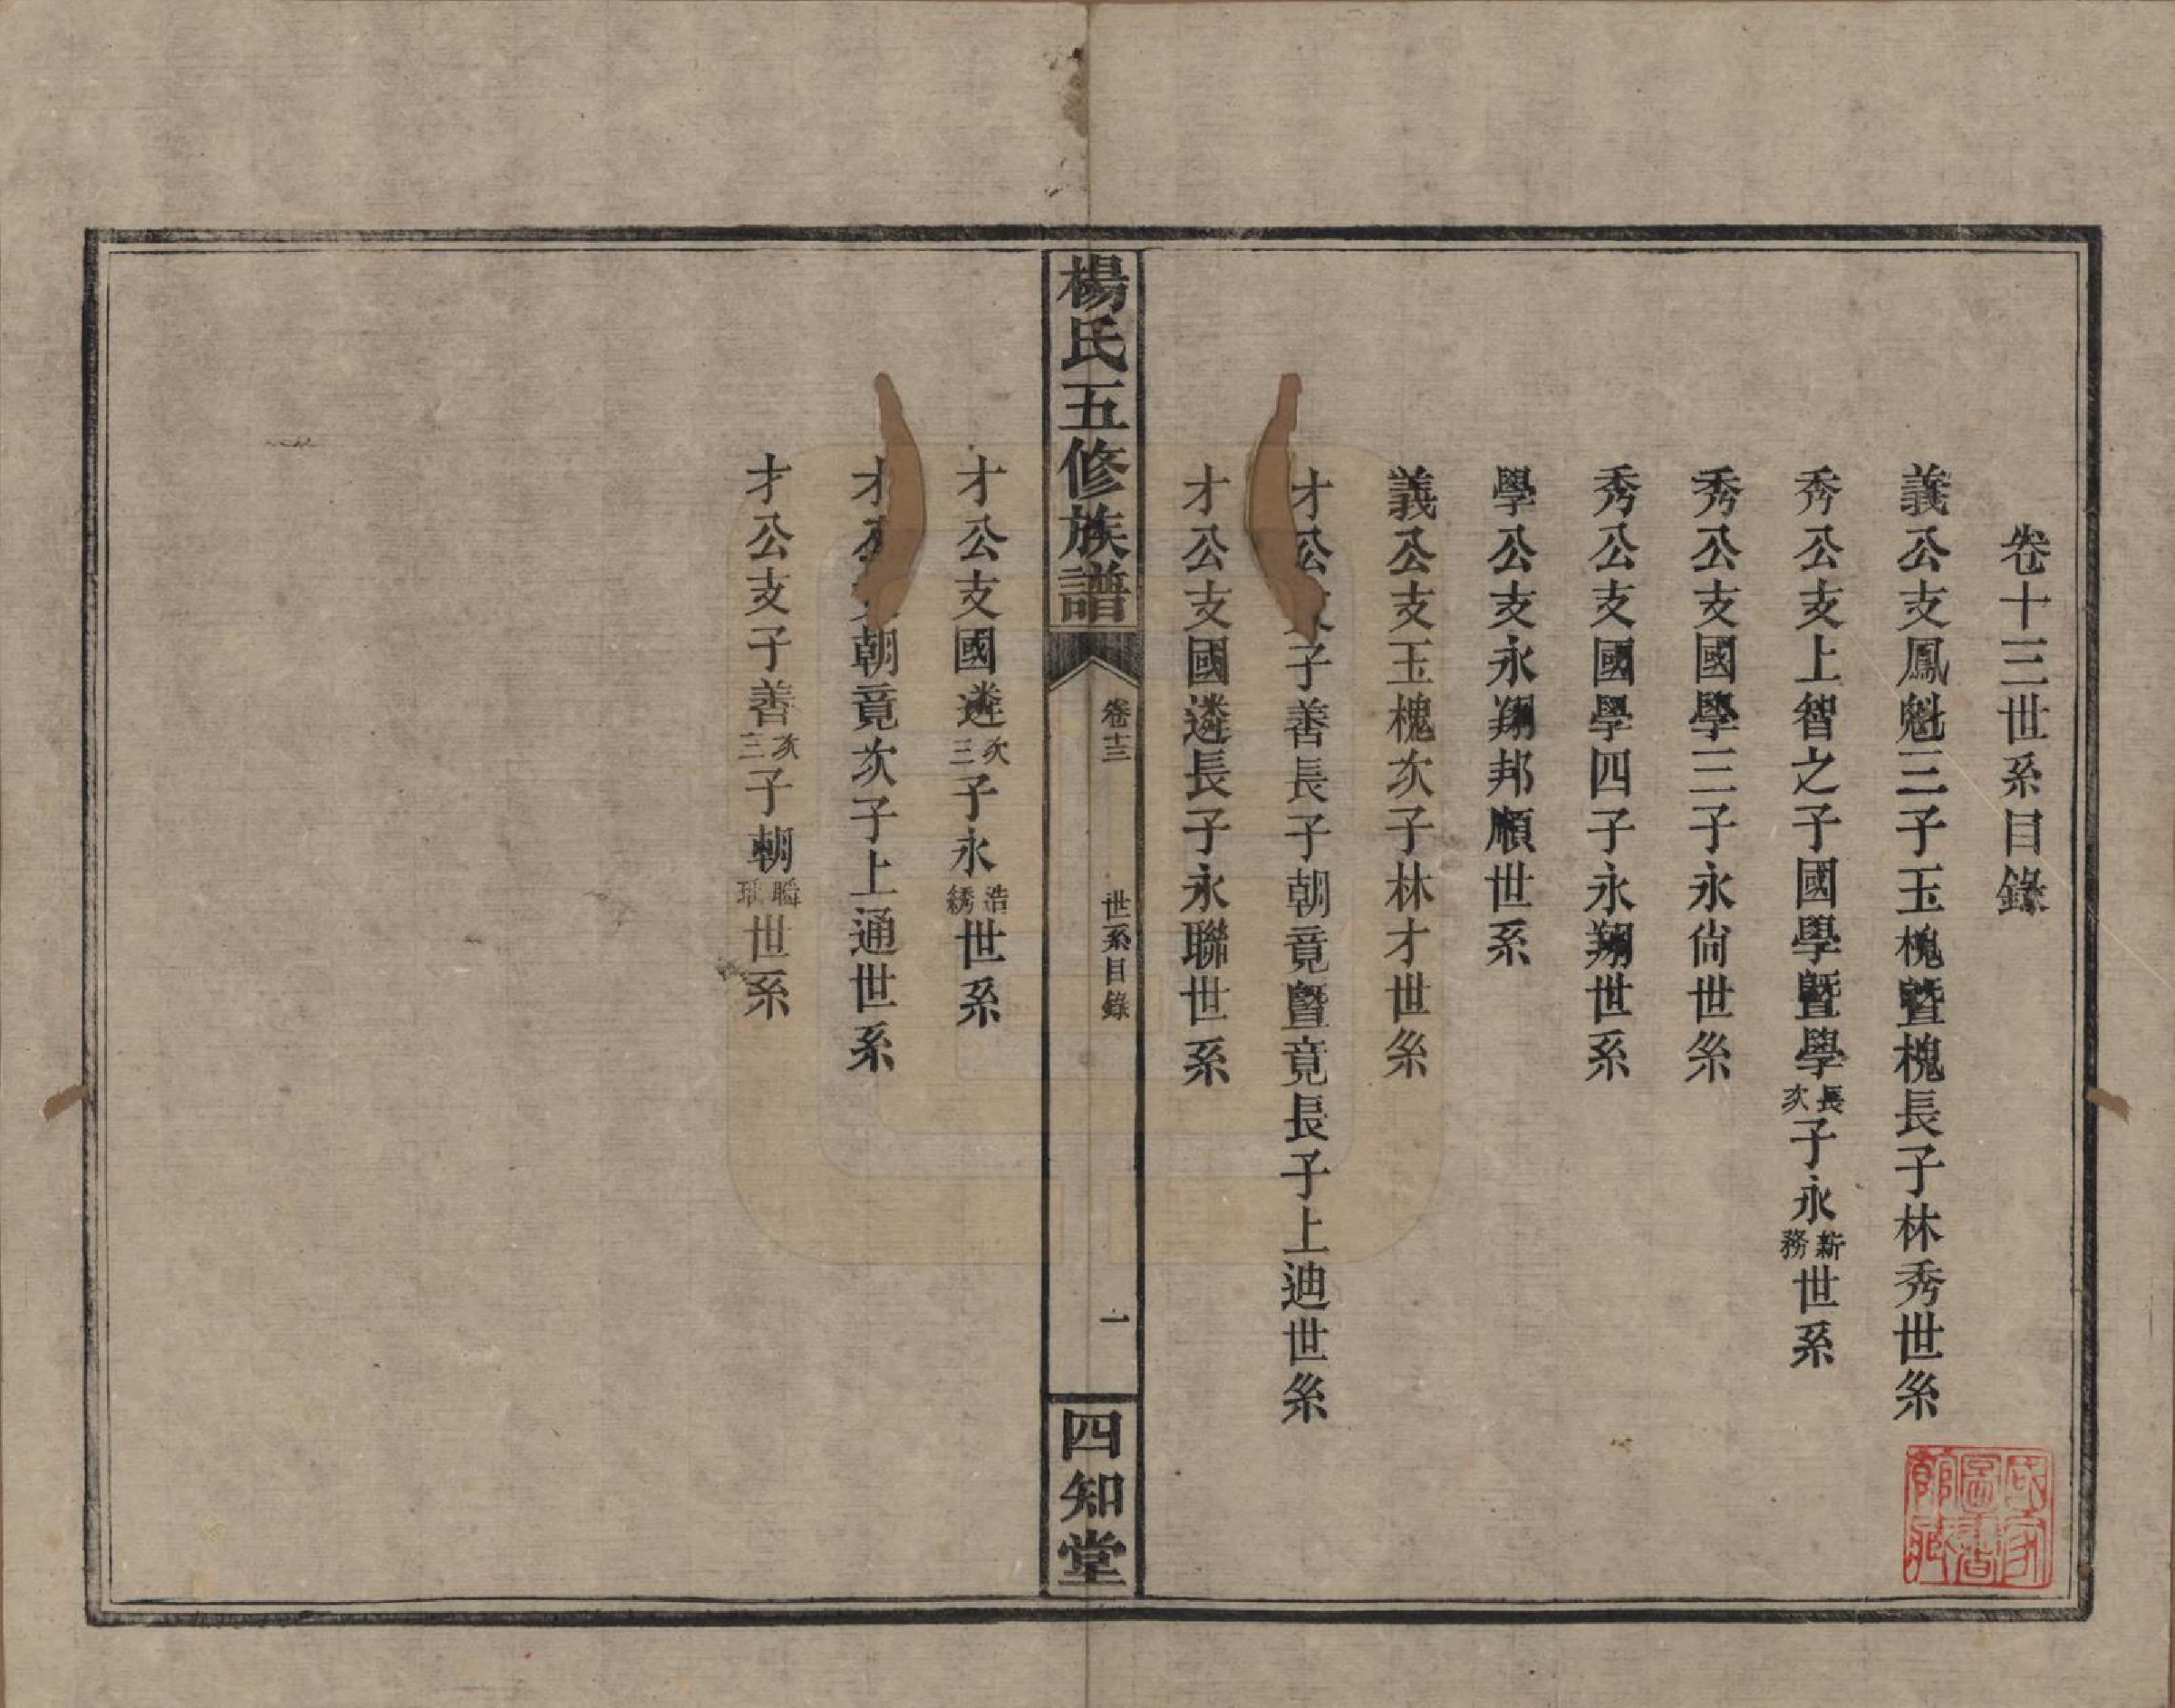 卷十三世系目錄
義公支鳳魁三子玉槐暨槐長子林秀世系
秀公支上智之子國學暨學長次子永新務世系
秀公支國學三子永尙世系
秀公支國學四子永翔世系
學公支永翔邦順世系
義公支玉槐次子林才世系
才公支子善長子朝竟暨竟長子上迪世系
才公支國遴長子永聯世系
楊氏五修族譜
卷十三
世系目錄
一
四知堂
才公支國遴次三子永浩綉世系
才公支朝竟次子上通世系
才公支子善次三子朝瞬世系
國家圖書館藏